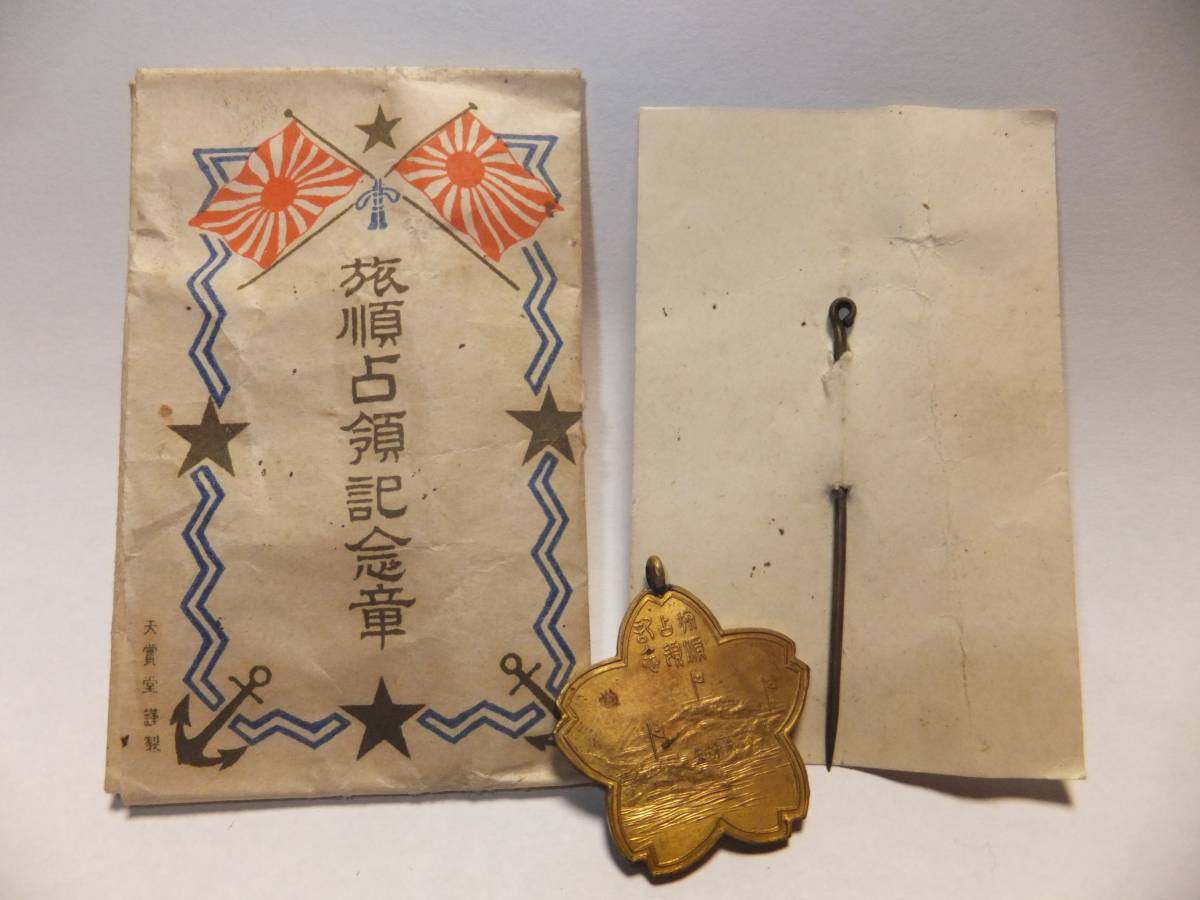 旅順占領記念章
天賞堂謹製
旅順
占領
記念